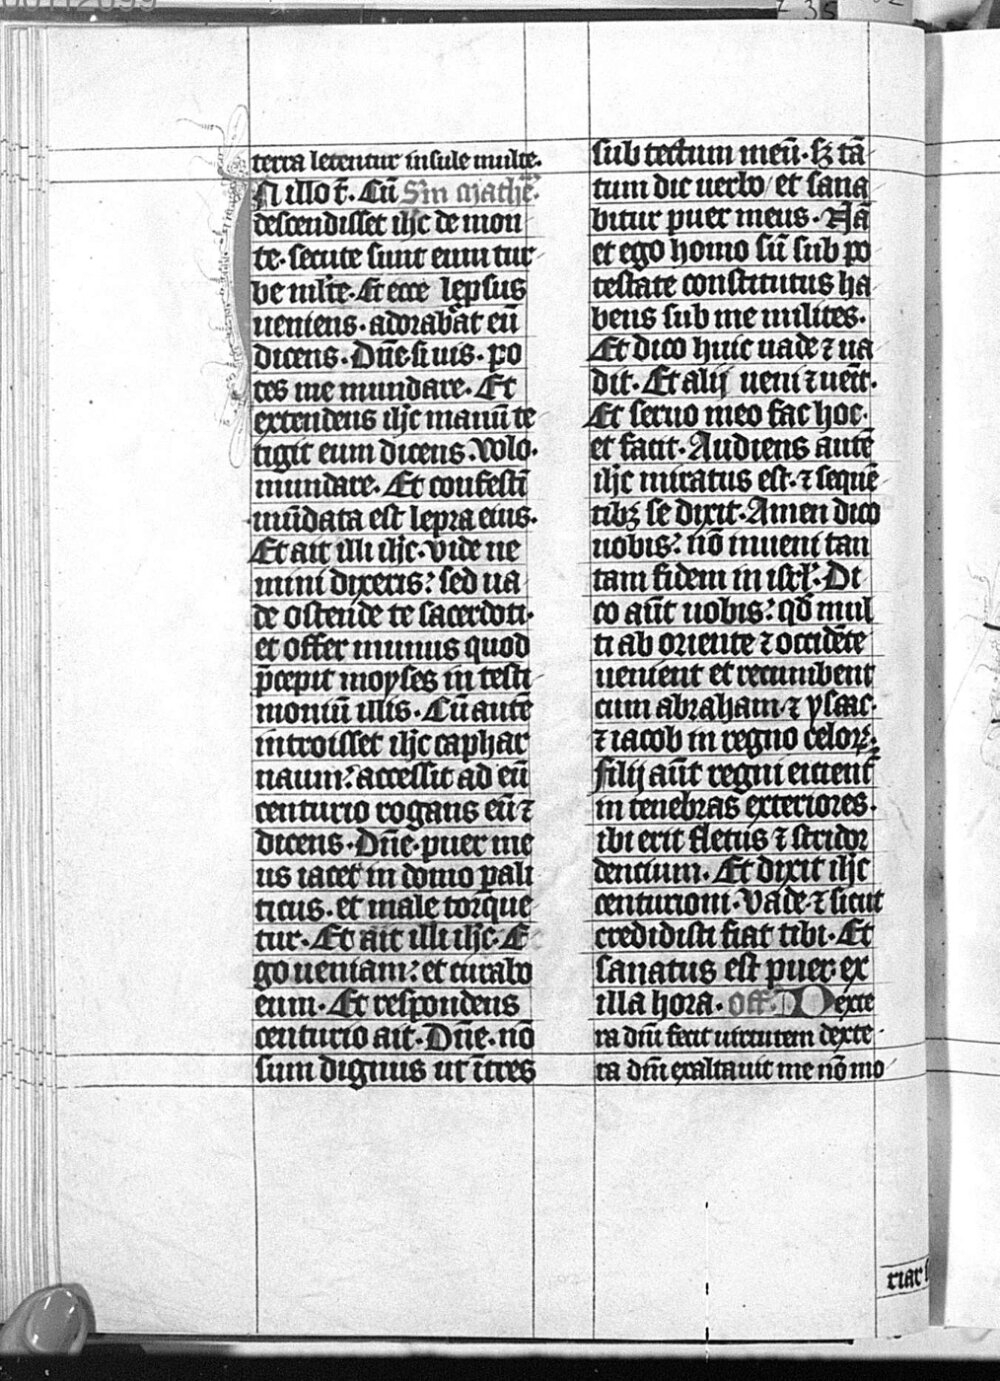 terra letentur insule multe.
In illo t̄. Cū Scd̄m Mathe̅.
descendisset ih̅c de mon
te. secute sunt eum tur
be ml̅te. Et ecce leprsus
ueniens. adorabat eū
dicens. Dn̅e si uis. po
tes me mundare. Et
extendens ih̅c manū te
tigit eum dicens. Volo.
mundare. Et confesti̅
mūdata est lepra eius.
Et ait illi ih̅c. vide ne
mini dixeris: sed ua
de ostende te sacerdoti.
et offer munus quod
p̅cepit moyses in testi
moniū illis. Cū aute̅
introisset ih̅c caphar
naum: accessit ad eū
centurio rogans eū ⁊
dicens. Dn̅e. puer me
us iacet in domo pali
ticus. et male torque
tur. Et ait illi ih̅c. E
go ueniam: et curabo
eum. Et respondens
centurio ait. Dn̅e. nō
sum dignus ut ītres
sub tectum meū. sꝫ tā
tum dic uerbo et sana
bitur puer meus. Nā
et ego homo sū sub po
testate constitutus ha
bens sub me milites.
Et dico huic uade ⁊ ua
dit. Et alij ueni ⁊ ueīt.
Et seruo meo fac hoc.
et facit. Audiens aute̅
ih̅c miratus est. ⁊ seque̅
tibꝫ se dixit. Amen dico
uobis: nō inueni tan
tam fidem in isrl̅. Di
co aūt uobis: qd̅ mul
ti ab oriente ⁊ occide̅te
uenient et recumbent
cum abraham ⁊ ysaac.
⁊ iacob in regno celoꝝ.
filij aūt regni eicient̄
in tenebras exteriores.
ibi erit fletus ⁊ stridor
dentium. Et dixit ih̅c
centurioni. Vade. ⁊ sicut
credidisti fiat tibi. Et
sanatus est puer ex
illa hora. off. Dexte
ra dn̅i fecit uirtutem dexte
ra dn̅i exaltauit me nō mo
riar